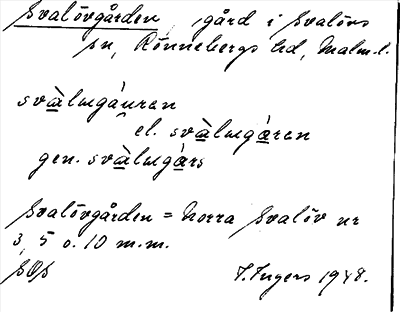 Svalövgården, gård i Svalövs
sn, Rönnebergs hd, Malm.l.
svàlugáuran
el. svàlugáran
gen. svàlugárs
Svalövgården = Norra Svalöv nr
3, 5 o. 10 m.m.
SOS
I. Ingers 1948.